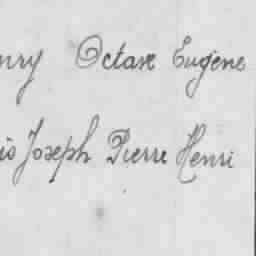 nry Octave Eugène
is Joseph Pierre Henri